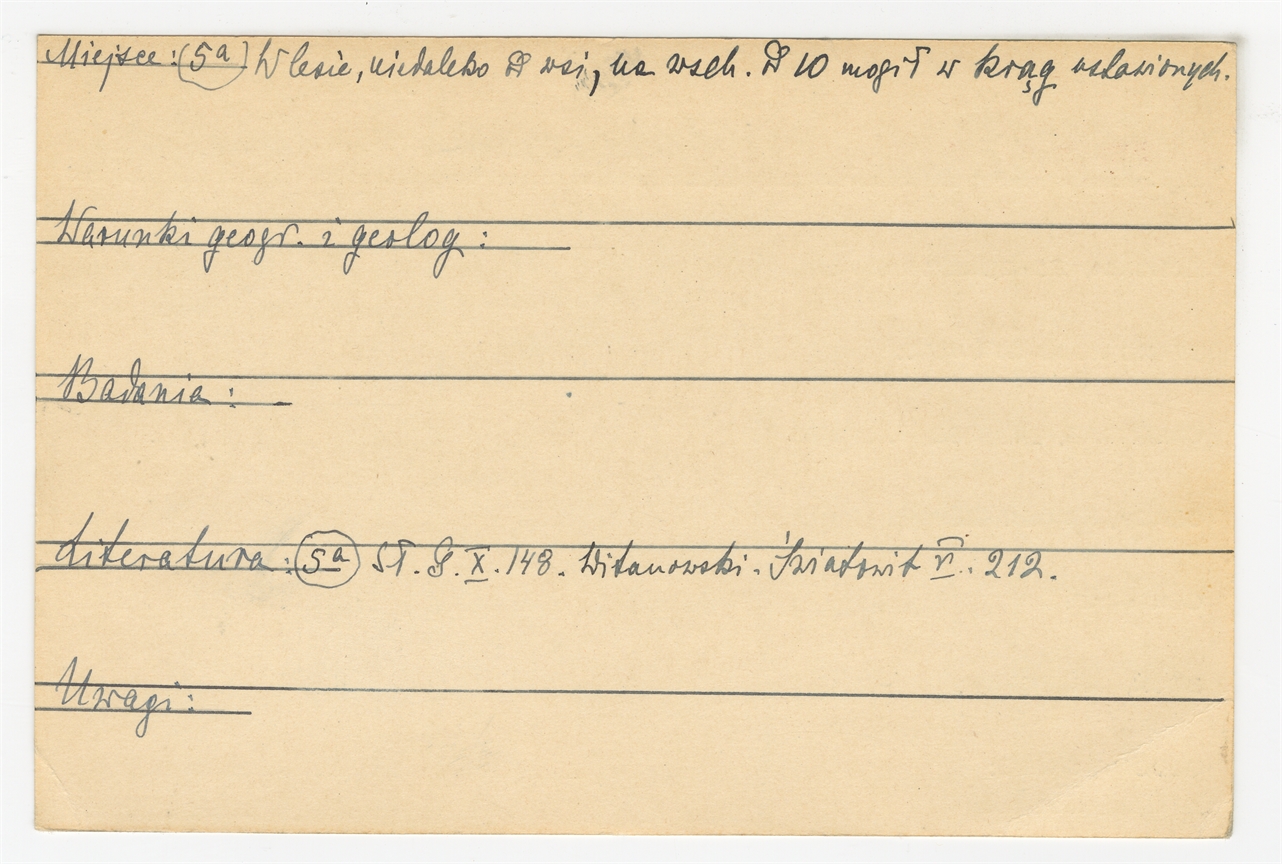 Miejsce: (5a) W lesie, niedaleko od wsi, na wsch. od 10 mogił w krąg ustawionych.
Warunki geogr. i geolog:
Badania:
Literatura: (5a) Sł. G. X. 148. Witanowski. Światowit VI. 212.
Uwagi: